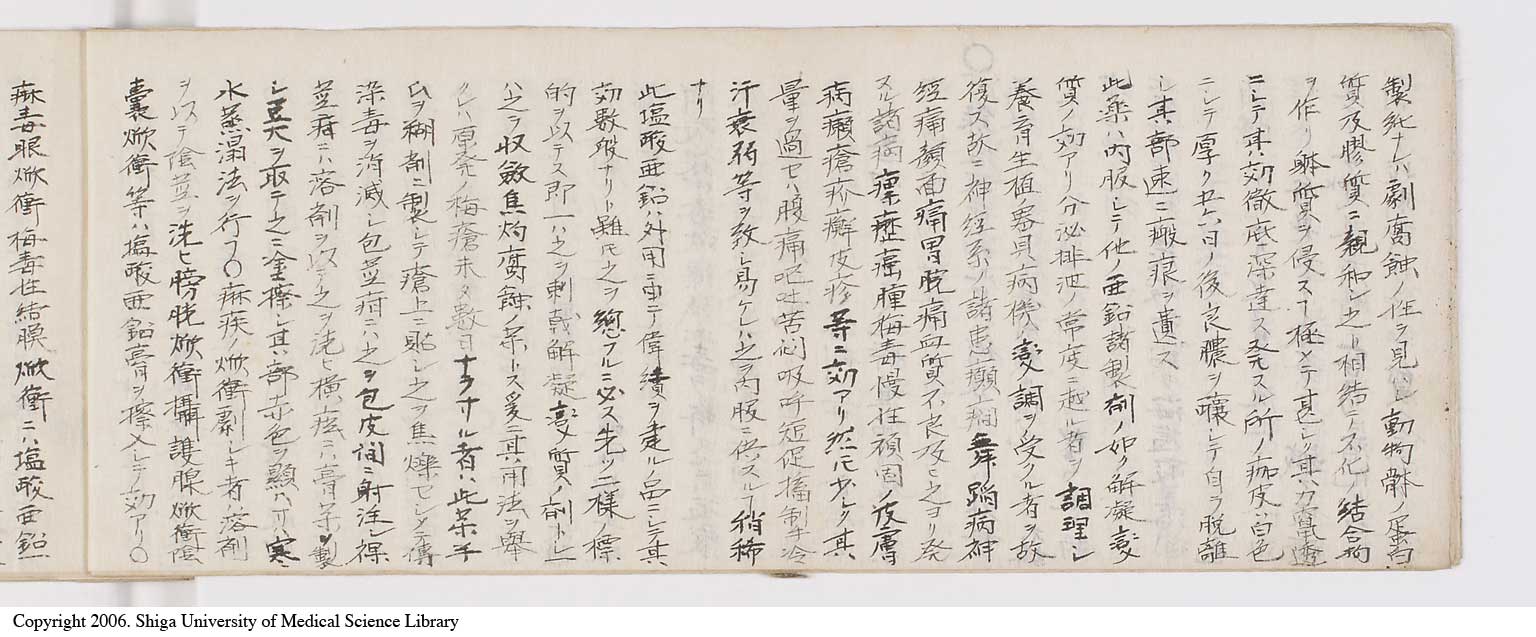 製純ナレハ劇腐蝕ノ性ヲ見ハシ動物躰ノ蛋白
質及膠質ニ親和シ之ト相結テ不化ノ結合物
ヲ作リ躰質ヲ侵スコ極メテ甚シク其力竄透
ニシテ其効徹底深達ス発スル所ノ痂皮ハ白色
ニシテ厚ク五六日ノ後良膿ヲ醸シテ自ラ脱離
シ其部速ニ瘢痕ヲ遺ス
此薬ハ内服シテ他ノ亜鉛諸製剤ノ如ク解凝変
質ノ効アリ分泌排泄ノ常度ニ越ル者ヲ調理シ
養育生植器具病機ノ変調ヲ受クル者ヲ故
復ス故ニ神経系ノ諸患癲癇舞蹈病神
経痛顔面痛胃脘痛血質不良及ヒ之ヨリ発
スル諸病瘰癧癌腫梅毒慢性頑固ノ皮膚
病癩瘡疥癬皮疹等ニ効アリ然𪜈少シク其
量ヲ過セハ腹痛嘔吐苦悶吸呼短促搐制冷
汗衰弱等ヲ致シ易ケレハ之ヲ内服ニ供スルコ稍稀
ナリ
此塩酸亜鉛ハ外用ニ由テ偉績ヲ奏ル品ニシテ其
効数般ナリト雖𪜈之ヲ總フルニ必ス先ツ二様ノ標
的ヲ以テス即一ハ之ヲ刺戟解凝変質ノ剤トシ一
ハ之ヲ収斂焦灼腐蝕ノ薬トス爰ニ其用法ヲ挙
クレハ原発ノ梅瘡未タ数日ナラサル者ハ此薬末
以ヲ糊剤ニ製シテ瘡上ニ貼シ之ヲ焦爍セシメテ傳
染毒ヲ消滅シ包茎疳ニハ之ヲ包皮間ニ射注シ裸
茎疳ニハ溶剤ヲ以テ之ヲ洗ヒ横痃ニハ膏薬ヲ製
シ豆大ヲ取テ之ニ塗擦シ其部赤色ヲ顕ハサハ寒
水蒸溻法ヲ行フ〇麻疾ノ焮衝劇シキ者ハ溶剤
ヲ以テ陰茎ヲ洗ヒ膀胱焮衝攝護腺焮衝陰
嚢焮衝等ハ塩酸亜鉛膏ヲ擦入シテ効アリ〇
麻毒眼焮衝梅毒性結膜焮衝ニハ塩酸亜鉛
Copyright 2006. Shiga University of Medical Science Library